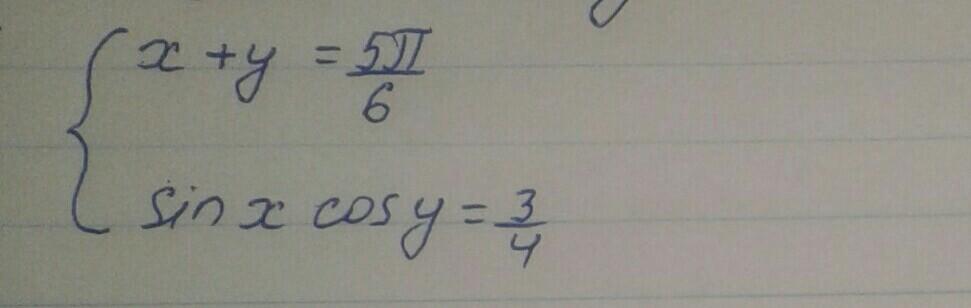 x + y = 5π/6
sin x cos y = 3/4